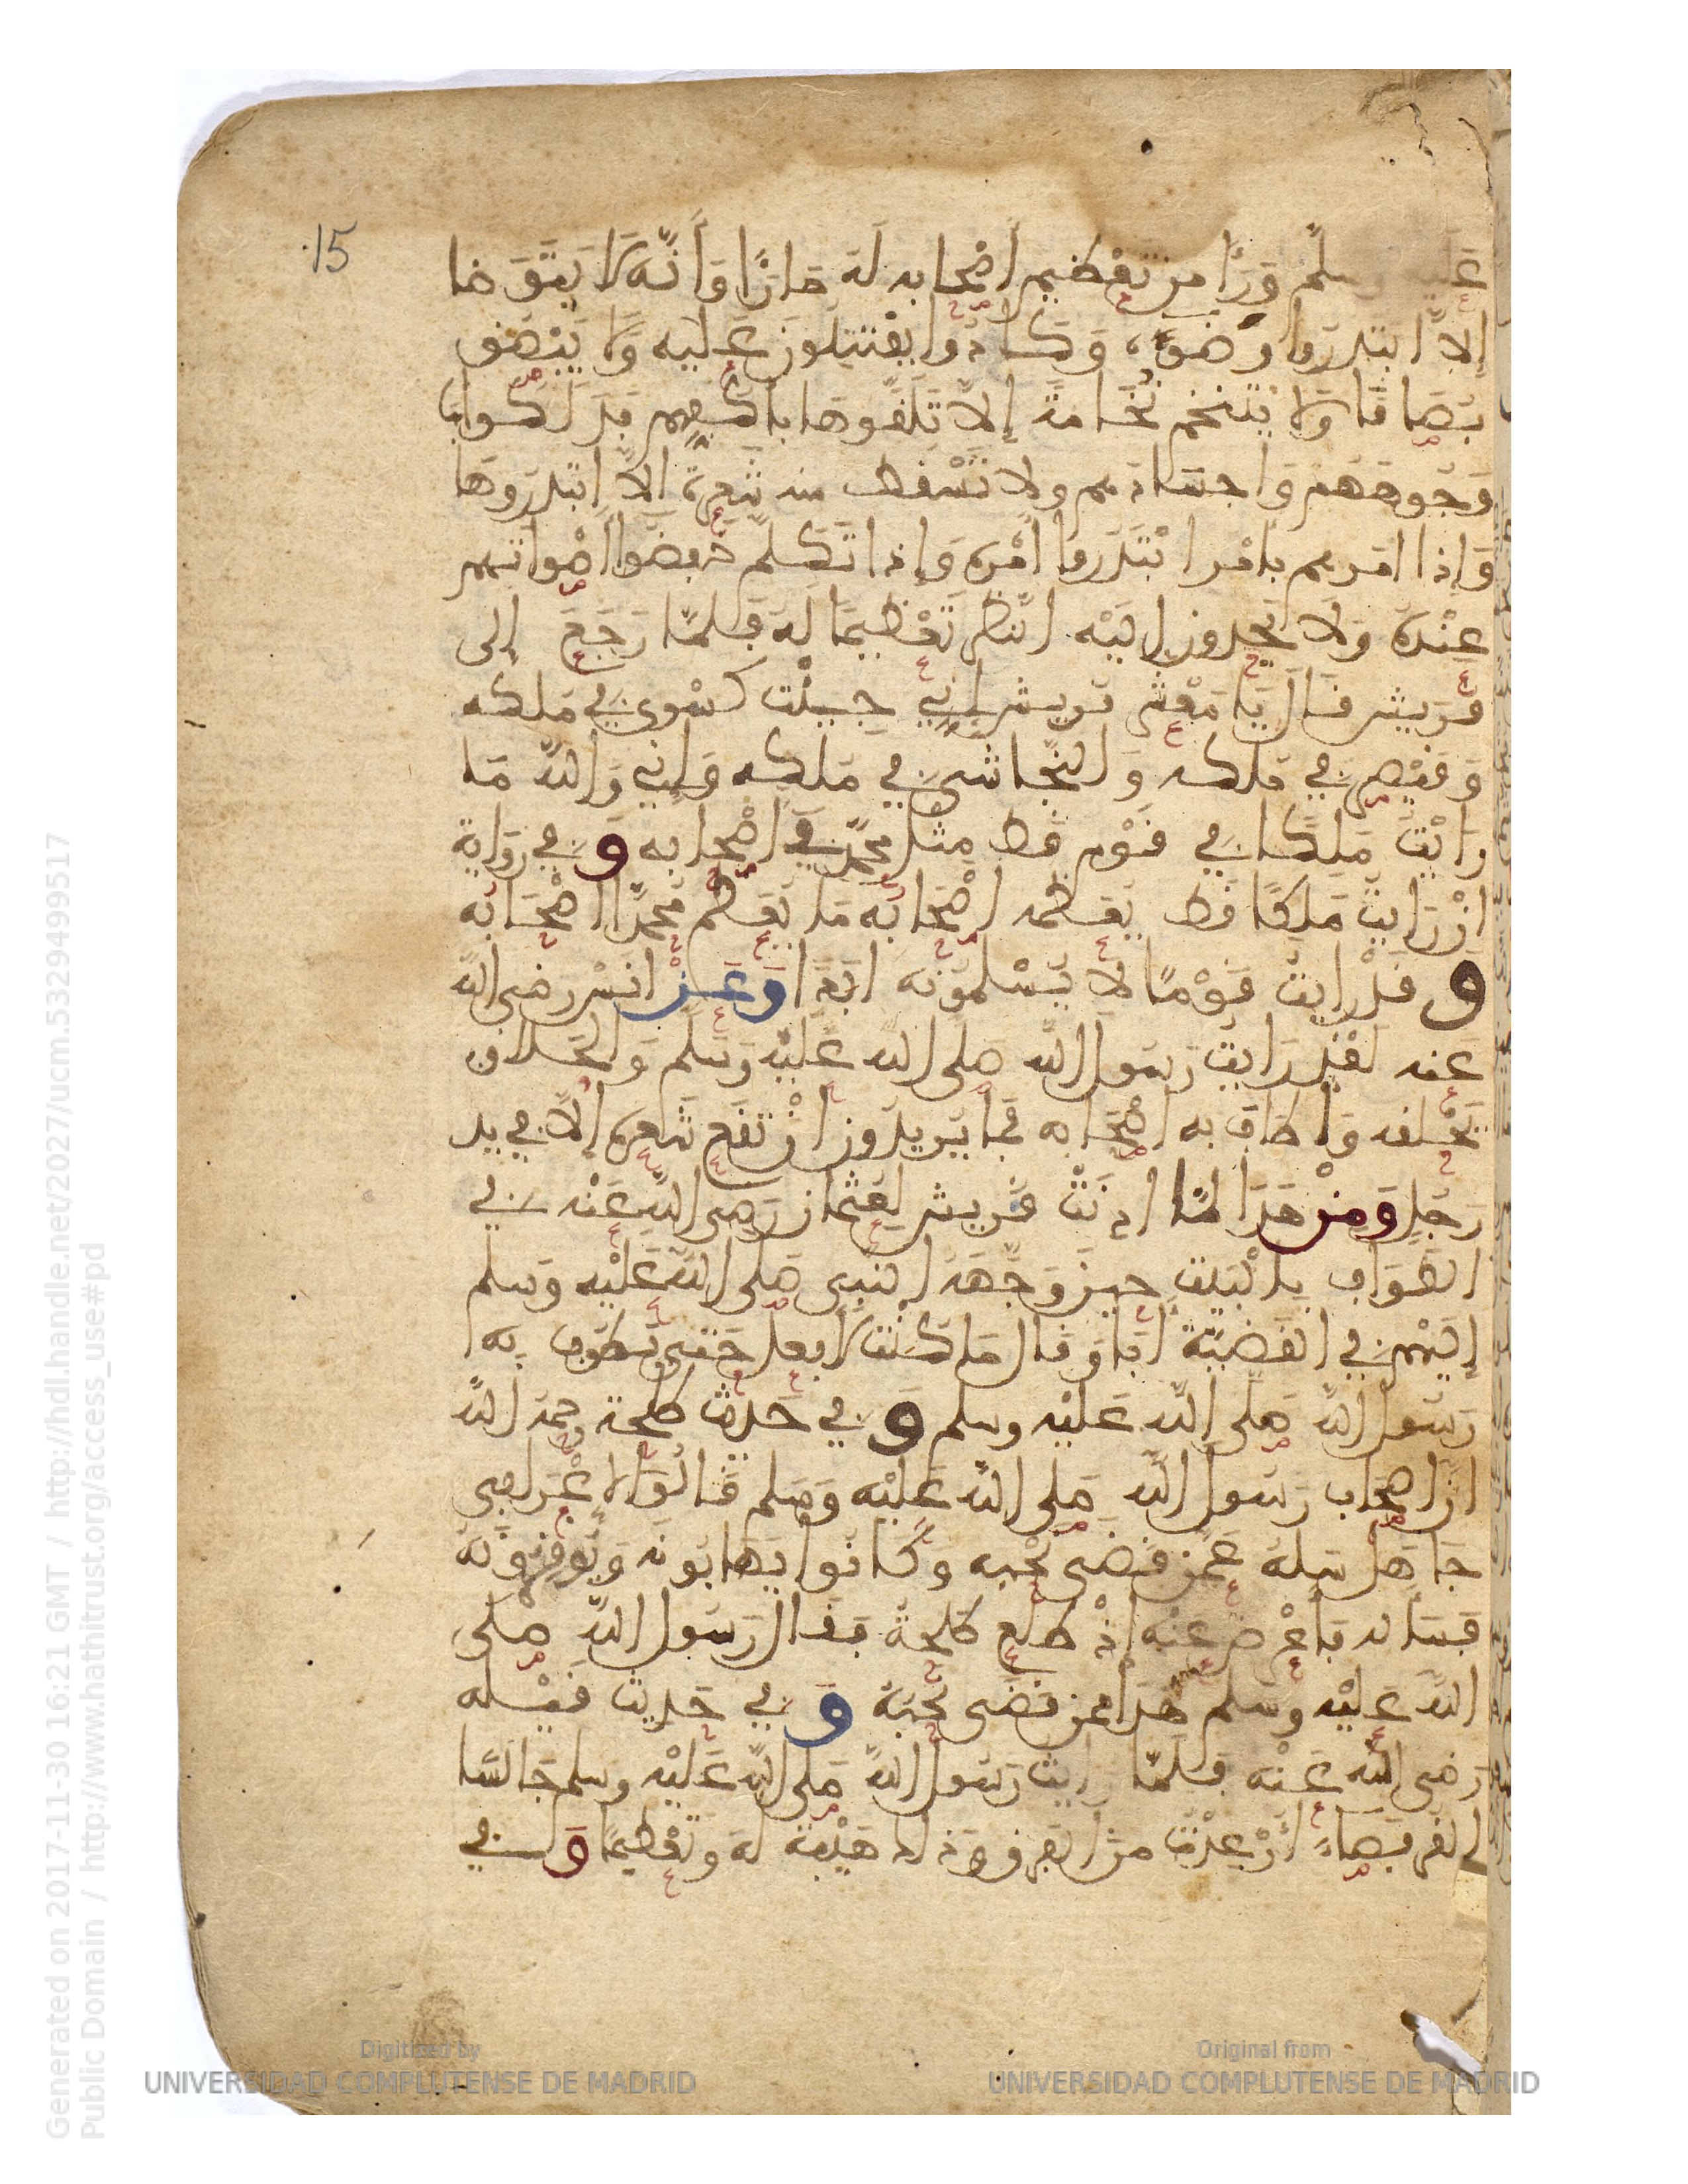 15
عليه وسلم ورأى من تعظيم أصحابه له ما رأى وأنه لا يتوضا
إلا ابتدروا وضوءه وكادوا يقتتلون عليه ولا يبصق
بصاقا ولا يتنخم نخامة إلا تلقوها بأكفهم فدلكوا بها
وجوههم وأجسادهم ولا تسقط منه شعرة إلا ابتدروها
وإذا أمرهم بأمر ابتدروا أمره وإذا تكلم خفضوا أصواتهم
عنده ولا يحدون إليه النظر تعظيما له فلما رجع إلى
قريش قال يا معشر قريش إني جيئت كسرى في ملكه
وقيصر في ملكه والنجاشي في ملكه وإني والله ما
رأيت ملكا في قوم قط مثل محمد في أصحابه وفي رواية
إن رأيت ملكا قط يعظمه أصحابه ما يعظم محمدا أصحابه
وقد رأيت قوما لا يسلمونه أبدا وعن أنس رضي الله
عنه لقد رأيت رسول الله صلى الله عليه وسلم والحلاق
يحلقه وأطاف به أصحابه فما يريدون أن تقع شعرة إلا في يد
رجل ومن هذا لما أذنت قريش لعثمان رضي الله عنه في
الطواف بالبيت حين وجهه النبي صلى الله عليه وسلم
إليهم في القضية أبا وقال ما كنت لأفعل حتى يطوف به
رسول الله صلى الله عليه وسلم وفي حديث طلحة رحمه الله
أن أصحاب رسول الله صلى الله عليه وسلم قالوا لأعرابي
جاهل سله عمن قضى نحبه وكانوا يهابونه ويوقرونه
فسأله فأعرض عنه إذ طلع طلحة فقال رسول الله صلى
الله عليه وسلم هذا ممن قضى نحبه وفي حديث قيلة
رضي الله عنه فلما رأيت رسول الله صلى الله عليه وسلم جالسا
القرفصاء أرعدت من الفرق وذلك هيبة له وتعظيما وفي
Generated on 2017-11-30 16:21 GMT / http://hdl.handle.net/2027/ucm.5329499517
Public Domain / http://www.hathitrust.org/access_use#pd
Digitized by
UNIVERSIDAD COMPLUTENSE DE MADRID
Original from
UNIVERSIDAD COMPLUTENSE DE MADRID